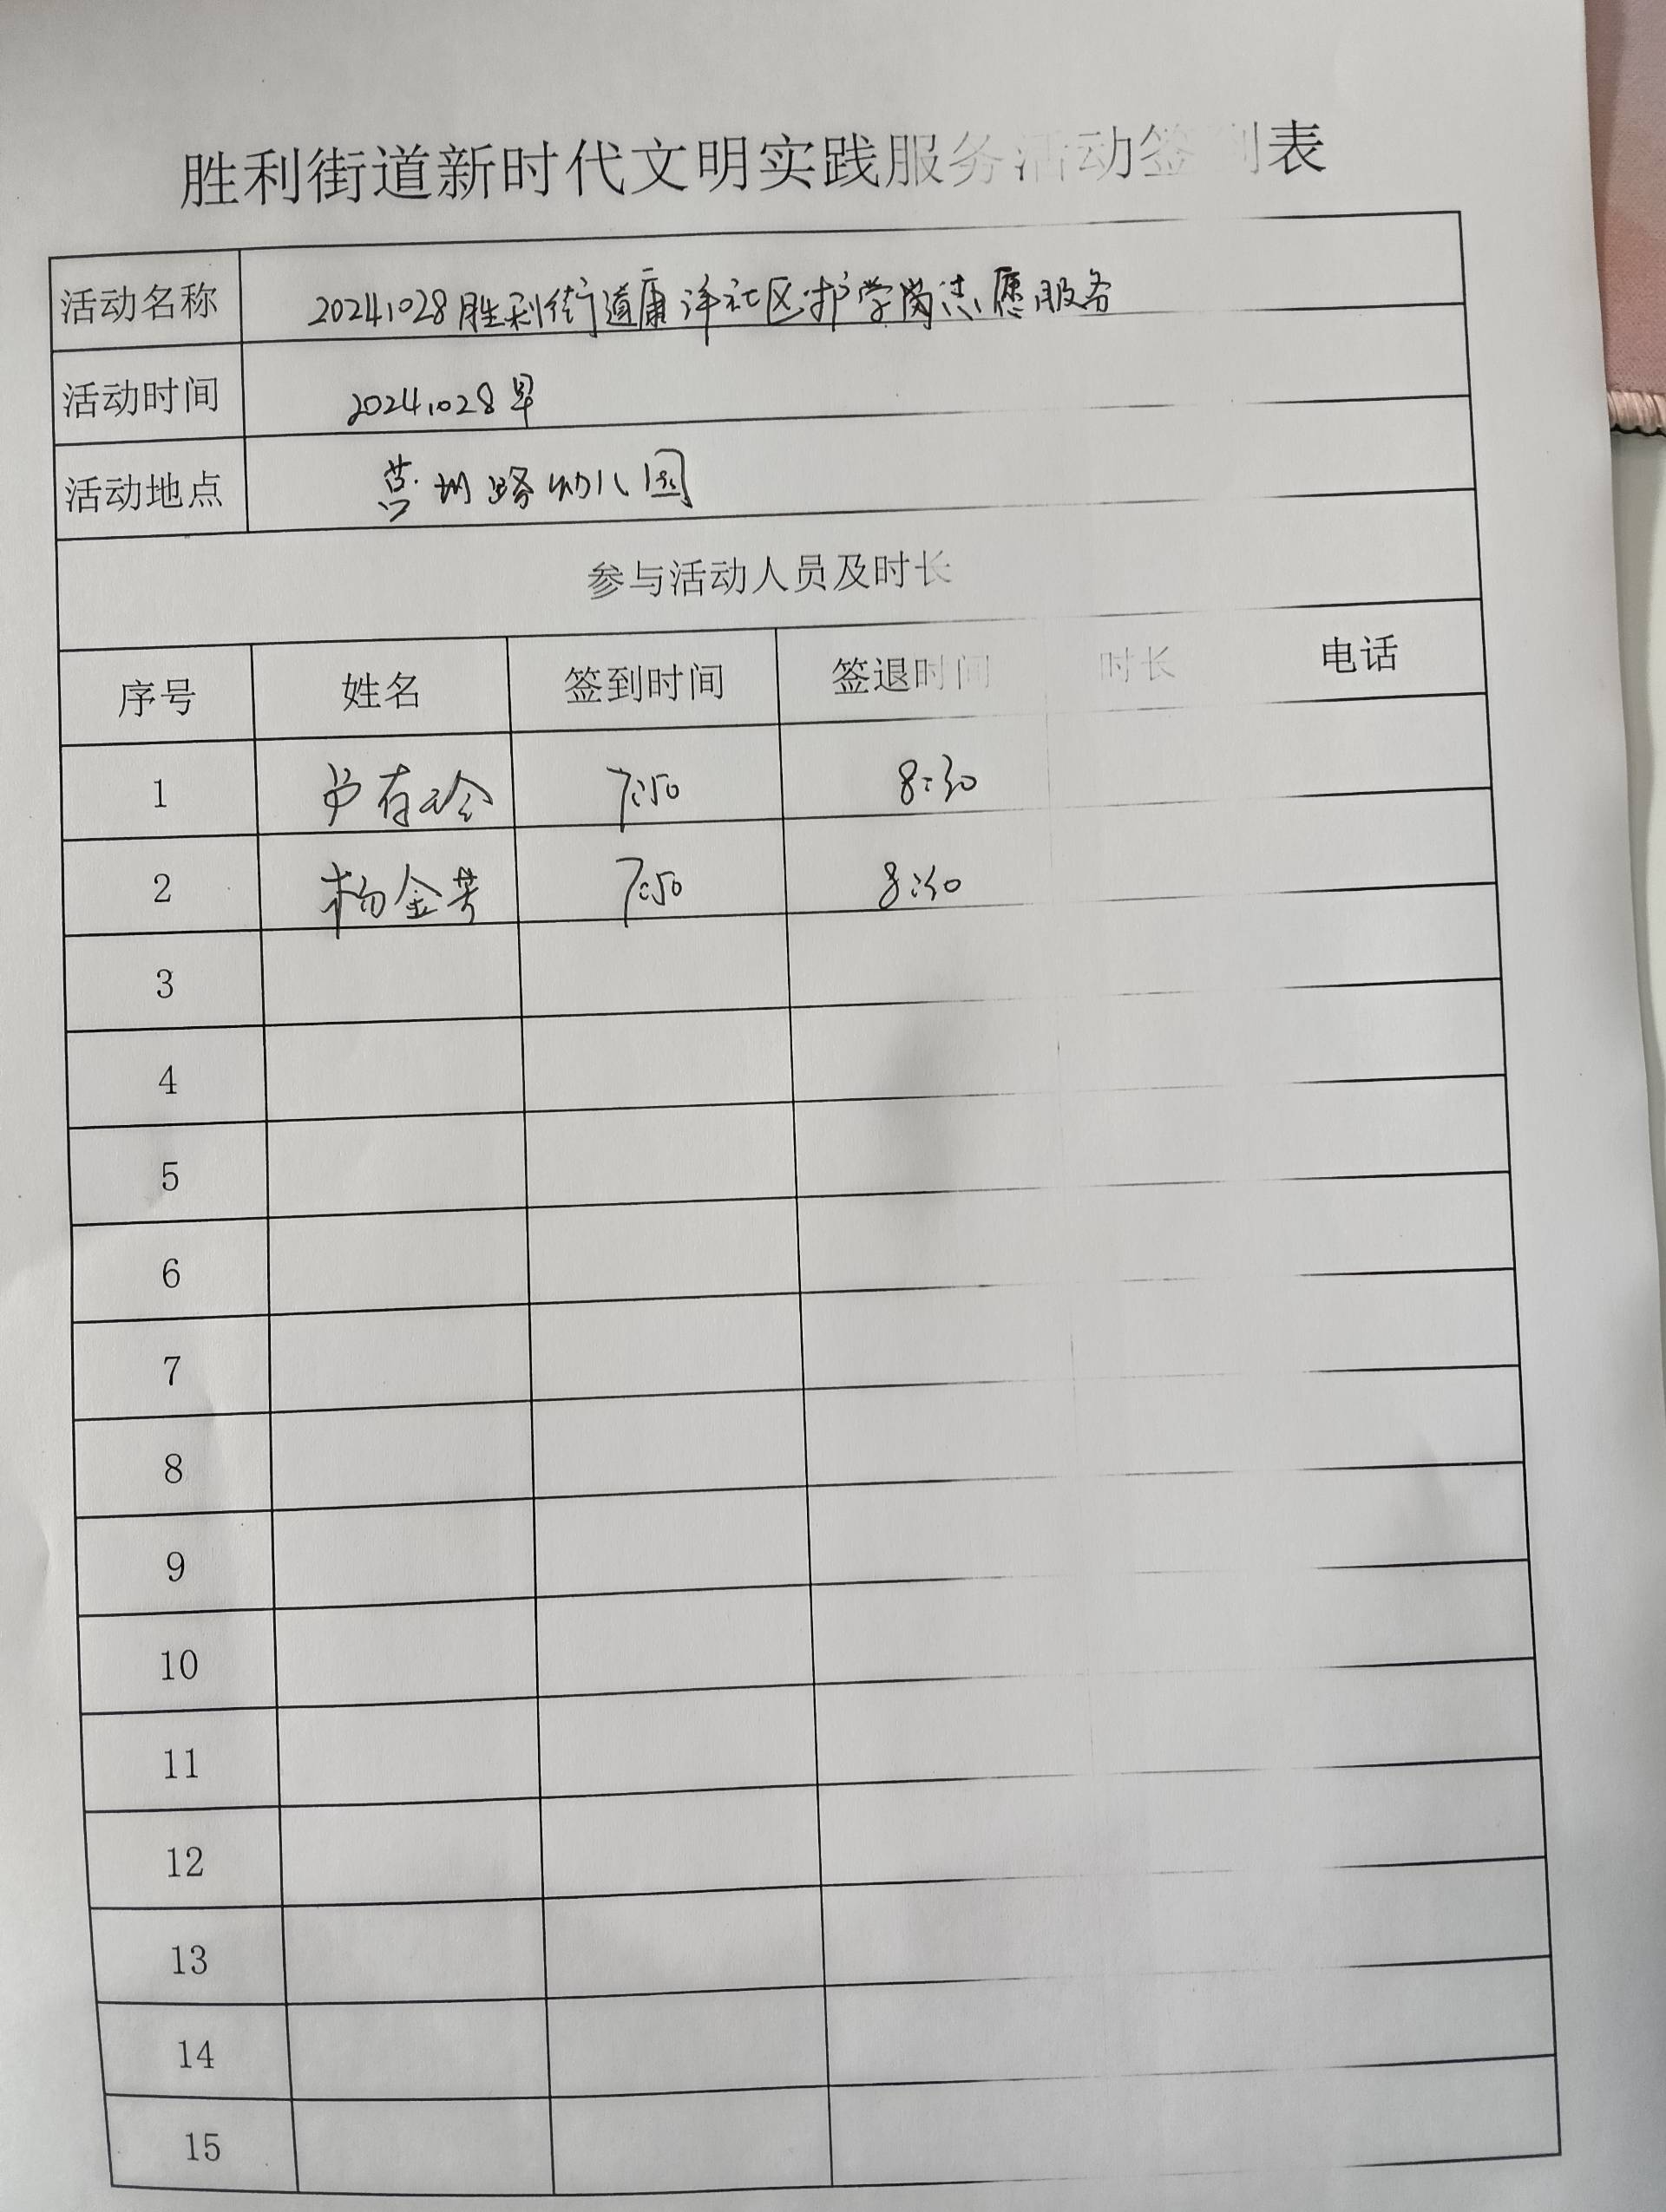 胜利街道新时代文明实践服务活动签到表
活动名称 20241028胜利街道康洋社区护学岗志愿服务
活动时间 20241028早
活动地点 莒州路幼儿园
参与活动人员及时长
序号 姓名 签到时间 签退时间 时长 电话
1 卢有玲 7:50 8:30
2 杨金芳 7:50 8:30
3
4
5
6
7
8
9
10
11
12
13
14
15